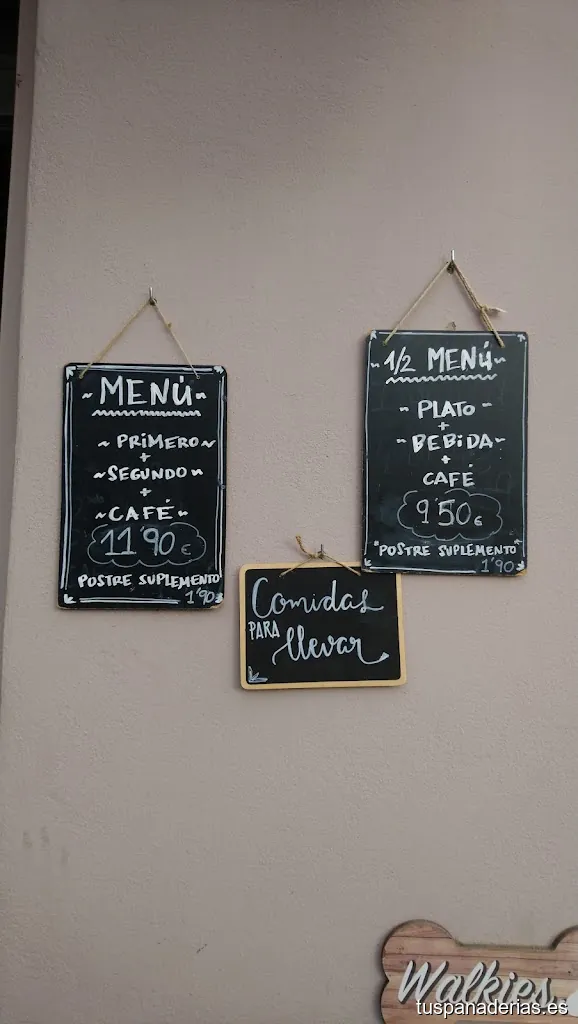 ~MENÚ~
~PRIMERO~
+
~SEGUNDO~
+
~CAFÉ~
11'90€
POSTRE SUPLEMENTO
1'90
~1/2 MENÚ~
~PLATO~
+
~BEBIDA~
+
CAFÉ
9'50€
"POSTRE SUPLEMENTO"
1'90
Comidas
PARA llevar
Walkies
tuspanaderias.es